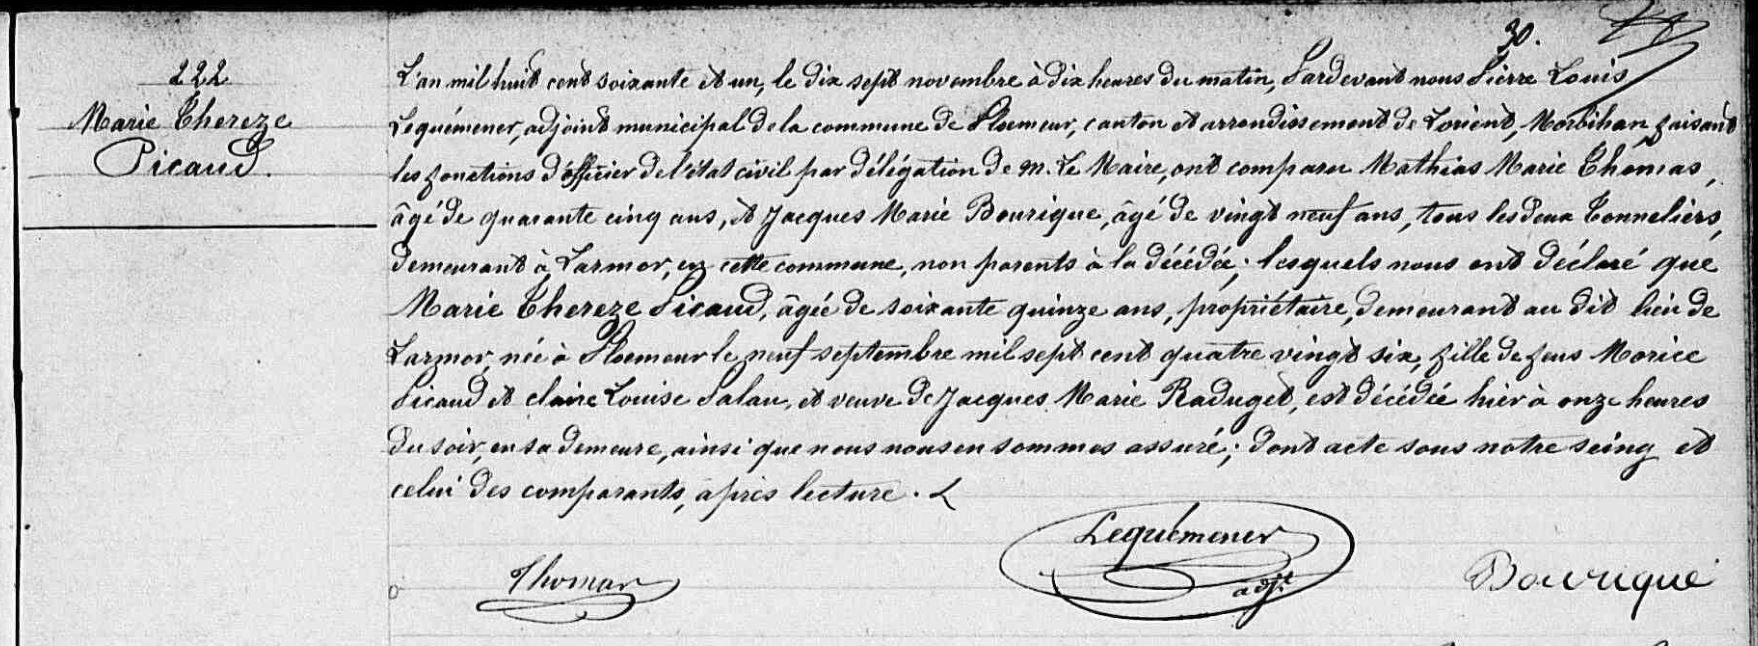 30.
222
Marie Thereze
Picaud.
L'an mil huit cent soixante et un, le dix sept novembre à dix heures du matin, Pardevant nous Pierre Louis
Lequémener, adjoint municipal de la commune de Ploemeur, canton et arrondissement de Lorient, Morbihan, faisant
les fonctions d'officier de l'état civil par délégation de M. Le Maire, ont comparu Mathias Marie Thomas,
âgé de quarante cinq ans, et Jacques Marie Bourique, âgé de vingt neuf ans, tous les deux Tonneliers,
demeurant à Larmor, en cette commune, non parents à la décédée; lesquels nous ont déclaré que
Marie Thereze Picaud, âgée de soixante quinze ans, propriétaire, demeurant au dit lieu de
Larmor, née à Ploemeur le neuf septembre mil sept cent quatre vingt six, fille de feus Morice
Picaud et claire Louise Salau, et veuve de Jacques Marie Raduget, est décédée hier à onze heures
du soir, en sa demeure, ainsi que nous nous en sommes assuré; dont acte sous notre seing et
celui des comparants, après lecture.
Thomas
Lequémener
adjt
Bourique